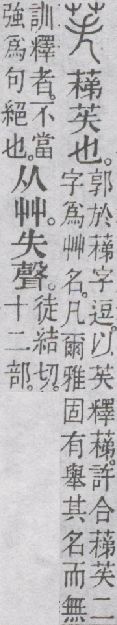 苵 蕛苵也。
郭於蕛字逗。以苵釋蕛。許合蕛苵二
字爲艸名。凡爾雅固有舉其名而無
訓釋者。不當
強爲句絕也。
从艸。失聲。
徒結切。
十二部。